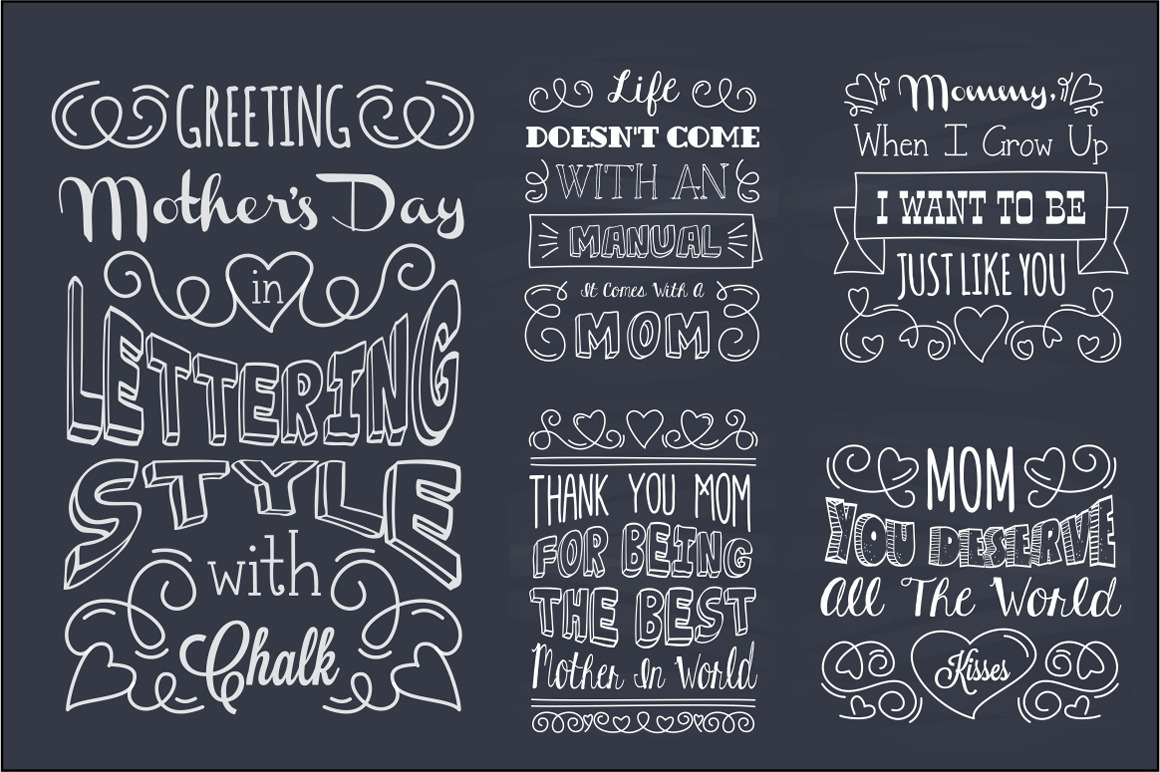 GREETING
Mother's Day
in
LETTERING
STYLE
with
Chalk
Life
DOESN'T COME
WITH AN
MANUAL
It Comes With A
MOM
Mommy,
When I Grow Up
I WANT TO BE
JUST LIKE YOU
THANK YOU MOM
FOR BEING
THE BEST
Mother In World
MOM
YOU DESERVE
All The World
Kisses